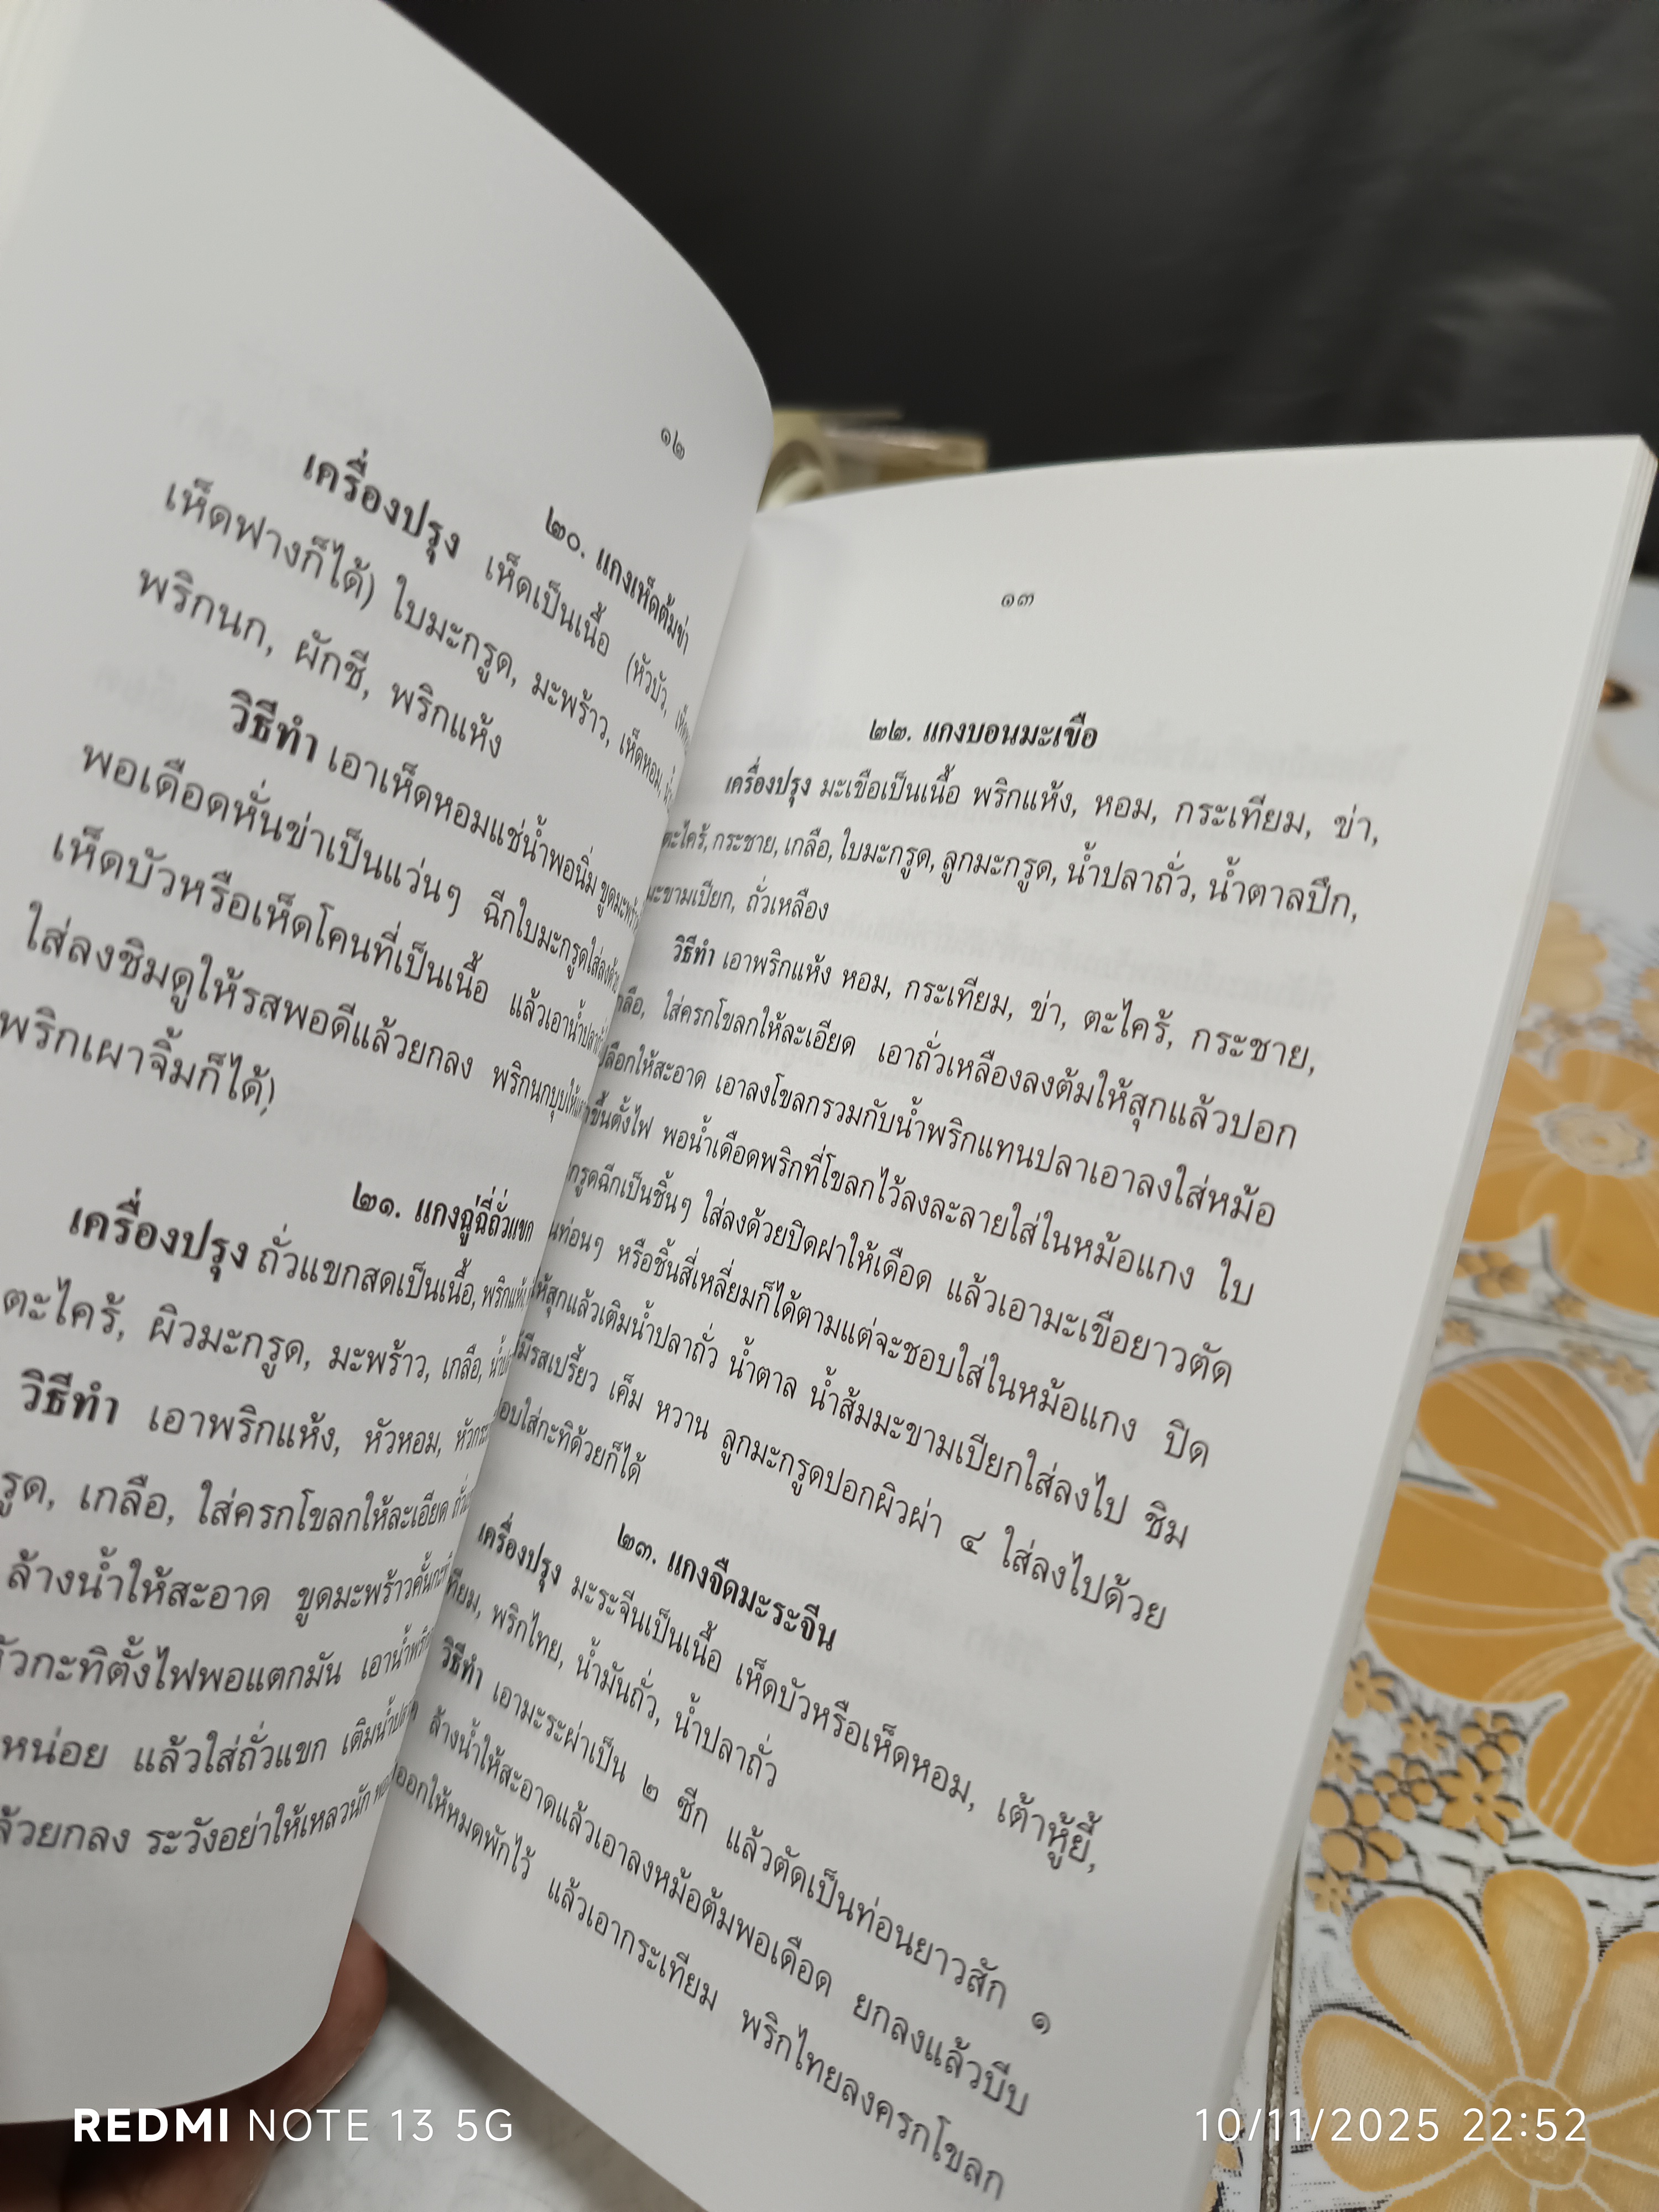 ๑๒
๒๐. แกงเห็ดต้มข่า
เครื่องปรุง เห็ดเป็นเนื้อ (หัวบัว,
เห็ดฟางก็ได้) ใบมะกรูด, มะพร้าว, เห็ดหอม,
พริกนก, ผักชี, พริกแห้ง
วิธีทำ เอาเห็ดหอมแช่น้ำพอนิ่ม ขูดมะพร้าว
พอเดือดหั่นข่าเป็นแว่นๆ ฉีกใบมะกรูดใส่ลงด้วย
เห็ดบัวหรือเห็ดโคนที่เป็นเนื้อ แล้วเอาน้ำปลา
ใส่ลงชิมดูให้รสพอดีแล้วยกลง พริกนกบุบให้
พริกเผาจิ้มก็ได้)
๒๑. แกงฉู่ฉี่ถั่วแขก
เครื่องปรุง ถั่วแขกสดเป็นเนื้อ, พริกแห้ง,
ตะไคร้, ผิวมะกรูด, มะพร้าว, เกลือ,
วิธีทำ เอาพริกแห้ง, หัวหอม,
รูด, เกลือ, ใส่ครกโขลกให้ละเอียด
ล้างน้ำให้สะอาด ขูดมะพร้าวคั้นกะทิ
หัวกะทิตั้งไฟพอแตกมัน เอาน้ำพริก
หน่อย แล้วใส่ถั่วแขก เติมน้ำปลา
ล้วยกลง ระวังอย่าให้เหลวนัก
๑๓
๒๒. แกงบอนมะเขือ
เครื่องปรุง มะเขือเป็นเนื้อ พริกแห้ง, หอม, กระเทียม, ข่า,
ตะไคร้, กระชาย, เกลือ, ใบมะกรูด, ลูกมะกรูด, น้ำปลาถั่ว, น้ำตาลปึก,
มะขามเปียก, ถั่วเหลือง
วิธีทำ เอาพริกแห้ง หอม, กระเทียม, ข่า, ตะไคร้, กระชาย,
กลือ, ใส่ครกโขลกให้ละเอียด เอาถั่วเหลืองลงต้มให้สุกแล้วปอก
ปลือกให้สะอาด เอาลงโขลกรวมกับน้ำพริกแทนปลาเอาลงใส่หม้อ
ขึ้นตั้งไฟ พอน้ำเดือดพริกที่โขลกไว้ลงละลายใส่ในหม้อแกง ใบ
กรูดฉีกเป็นชิ้นๆ ใส่ลงด้วยปิดฝาให้เดือด แล้วเอามะเขือยาวตัด
นท่อนๆ หรือชิ้นสี่เหลี่ยมก็ได้ตามแต่จะชอบใส่ในหม้อแกง ปิด
ให้สุกแล้วเติมน้ำปลาถั่ว น้ำตาล น้ำส้มมะขามเปียกใส่ลงไป ชิม
มีรสเปรี้ยว เค็ม หวาน ลูกมะกรูดปอกผิวผ่า ๔ ใส่ลงไปด้วย
อบใส่กะทิด้วยก็ได้
๒๓. แกงจืดมะระจีน
เครื่องปรุง มะระจีนเป็นเนื้อ เห็ดบัวหรือเห็ดหอม, เต้าหู้ยี้,
ทียม, พริกไทย, น้ำมันถั่ว, น้ำปลาถั่ว
วิธีทำ เอามะระผ่าเป็น ๒ ซีก แล้วตัดเป็นท่อนยาวสัก ๑
ล้างน้ำให้สะอาดแล้วเอาลงหม้อต้มพอเดือด ยกลงแล้วบีบ
ออกให้หมดพักไว้ แล้วเอากระเทียม พริกไทยลงครกโขลก
REDMI NOTE 13 5G
10/11/2025 22:52